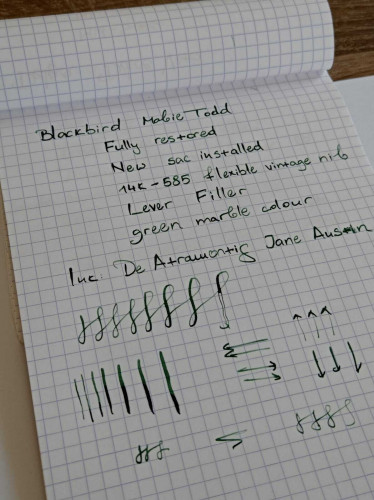 Blackbird Mabie Todd
Fully restored
New sac installed
14K-585 flexible vintage nib
Lever Filler
green marble colour
Inc: De Atramentis Jane Austen